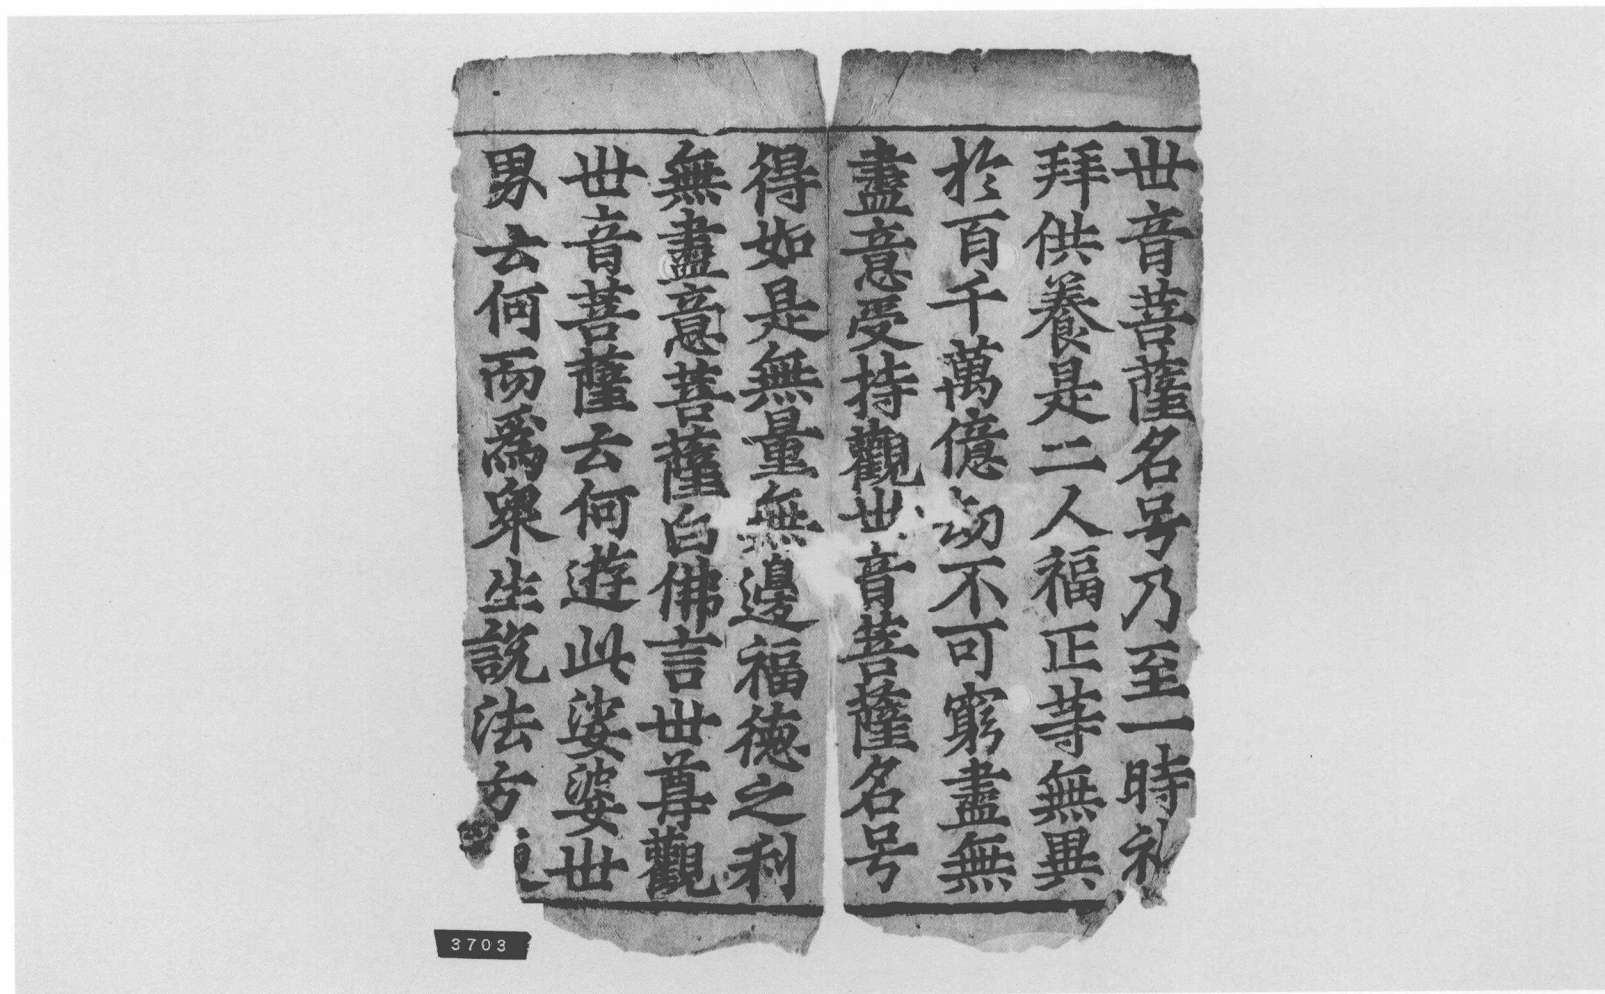 世音菩薩名号乃至一時礼
拜供養是二人福正等無異
於百千萬億劫不可窮盡無
盡意受持觀世音菩薩名号
得如是無量無邊福德之利
無盡意菩薩白佛言世尊觀
世音菩薩云何遊此娑婆世
界云何而爲衆生說法方
3703